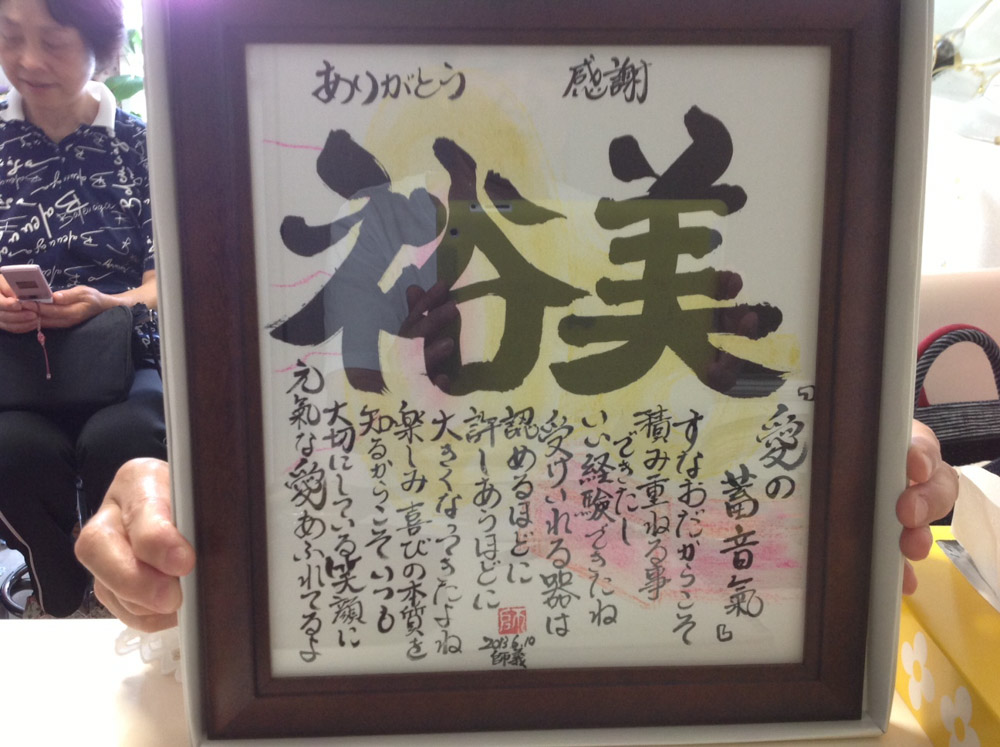 ありがとう
感謝
裕美
『愛の
蓄音氣』
すなおだからこそ
積み重ねる事
できたし
いい経験できたね
受けいれる器は
認めるほどに
許しあうほどに
大きくなってきたよね
楽しみ喜びの本質を
知るからこそいつも
大切にしている笑顔に
元氣な愛あふれてるよ
2013.6.10